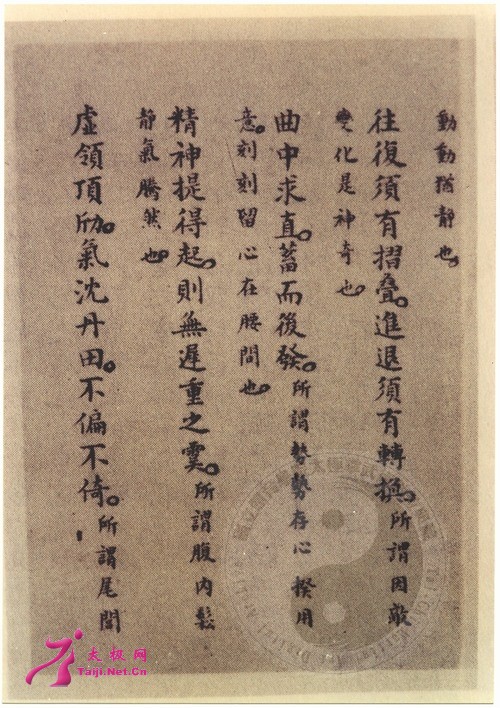 動動猶靜也。
往復須有摺叠。進退須有轉換。所謂因敵
變化是神奇也。
曲中求直。蓄而後發。所謂勢勢存心揆用
意。刻刻留心在腰間也。
精神提得起。則無遲重之虞。所謂腹內鬆
靜氣騰然也。
虛領頂劤。氣沈丹田。不偏不倚。所謂尾閭
太极网
Taiji.Net.Cn